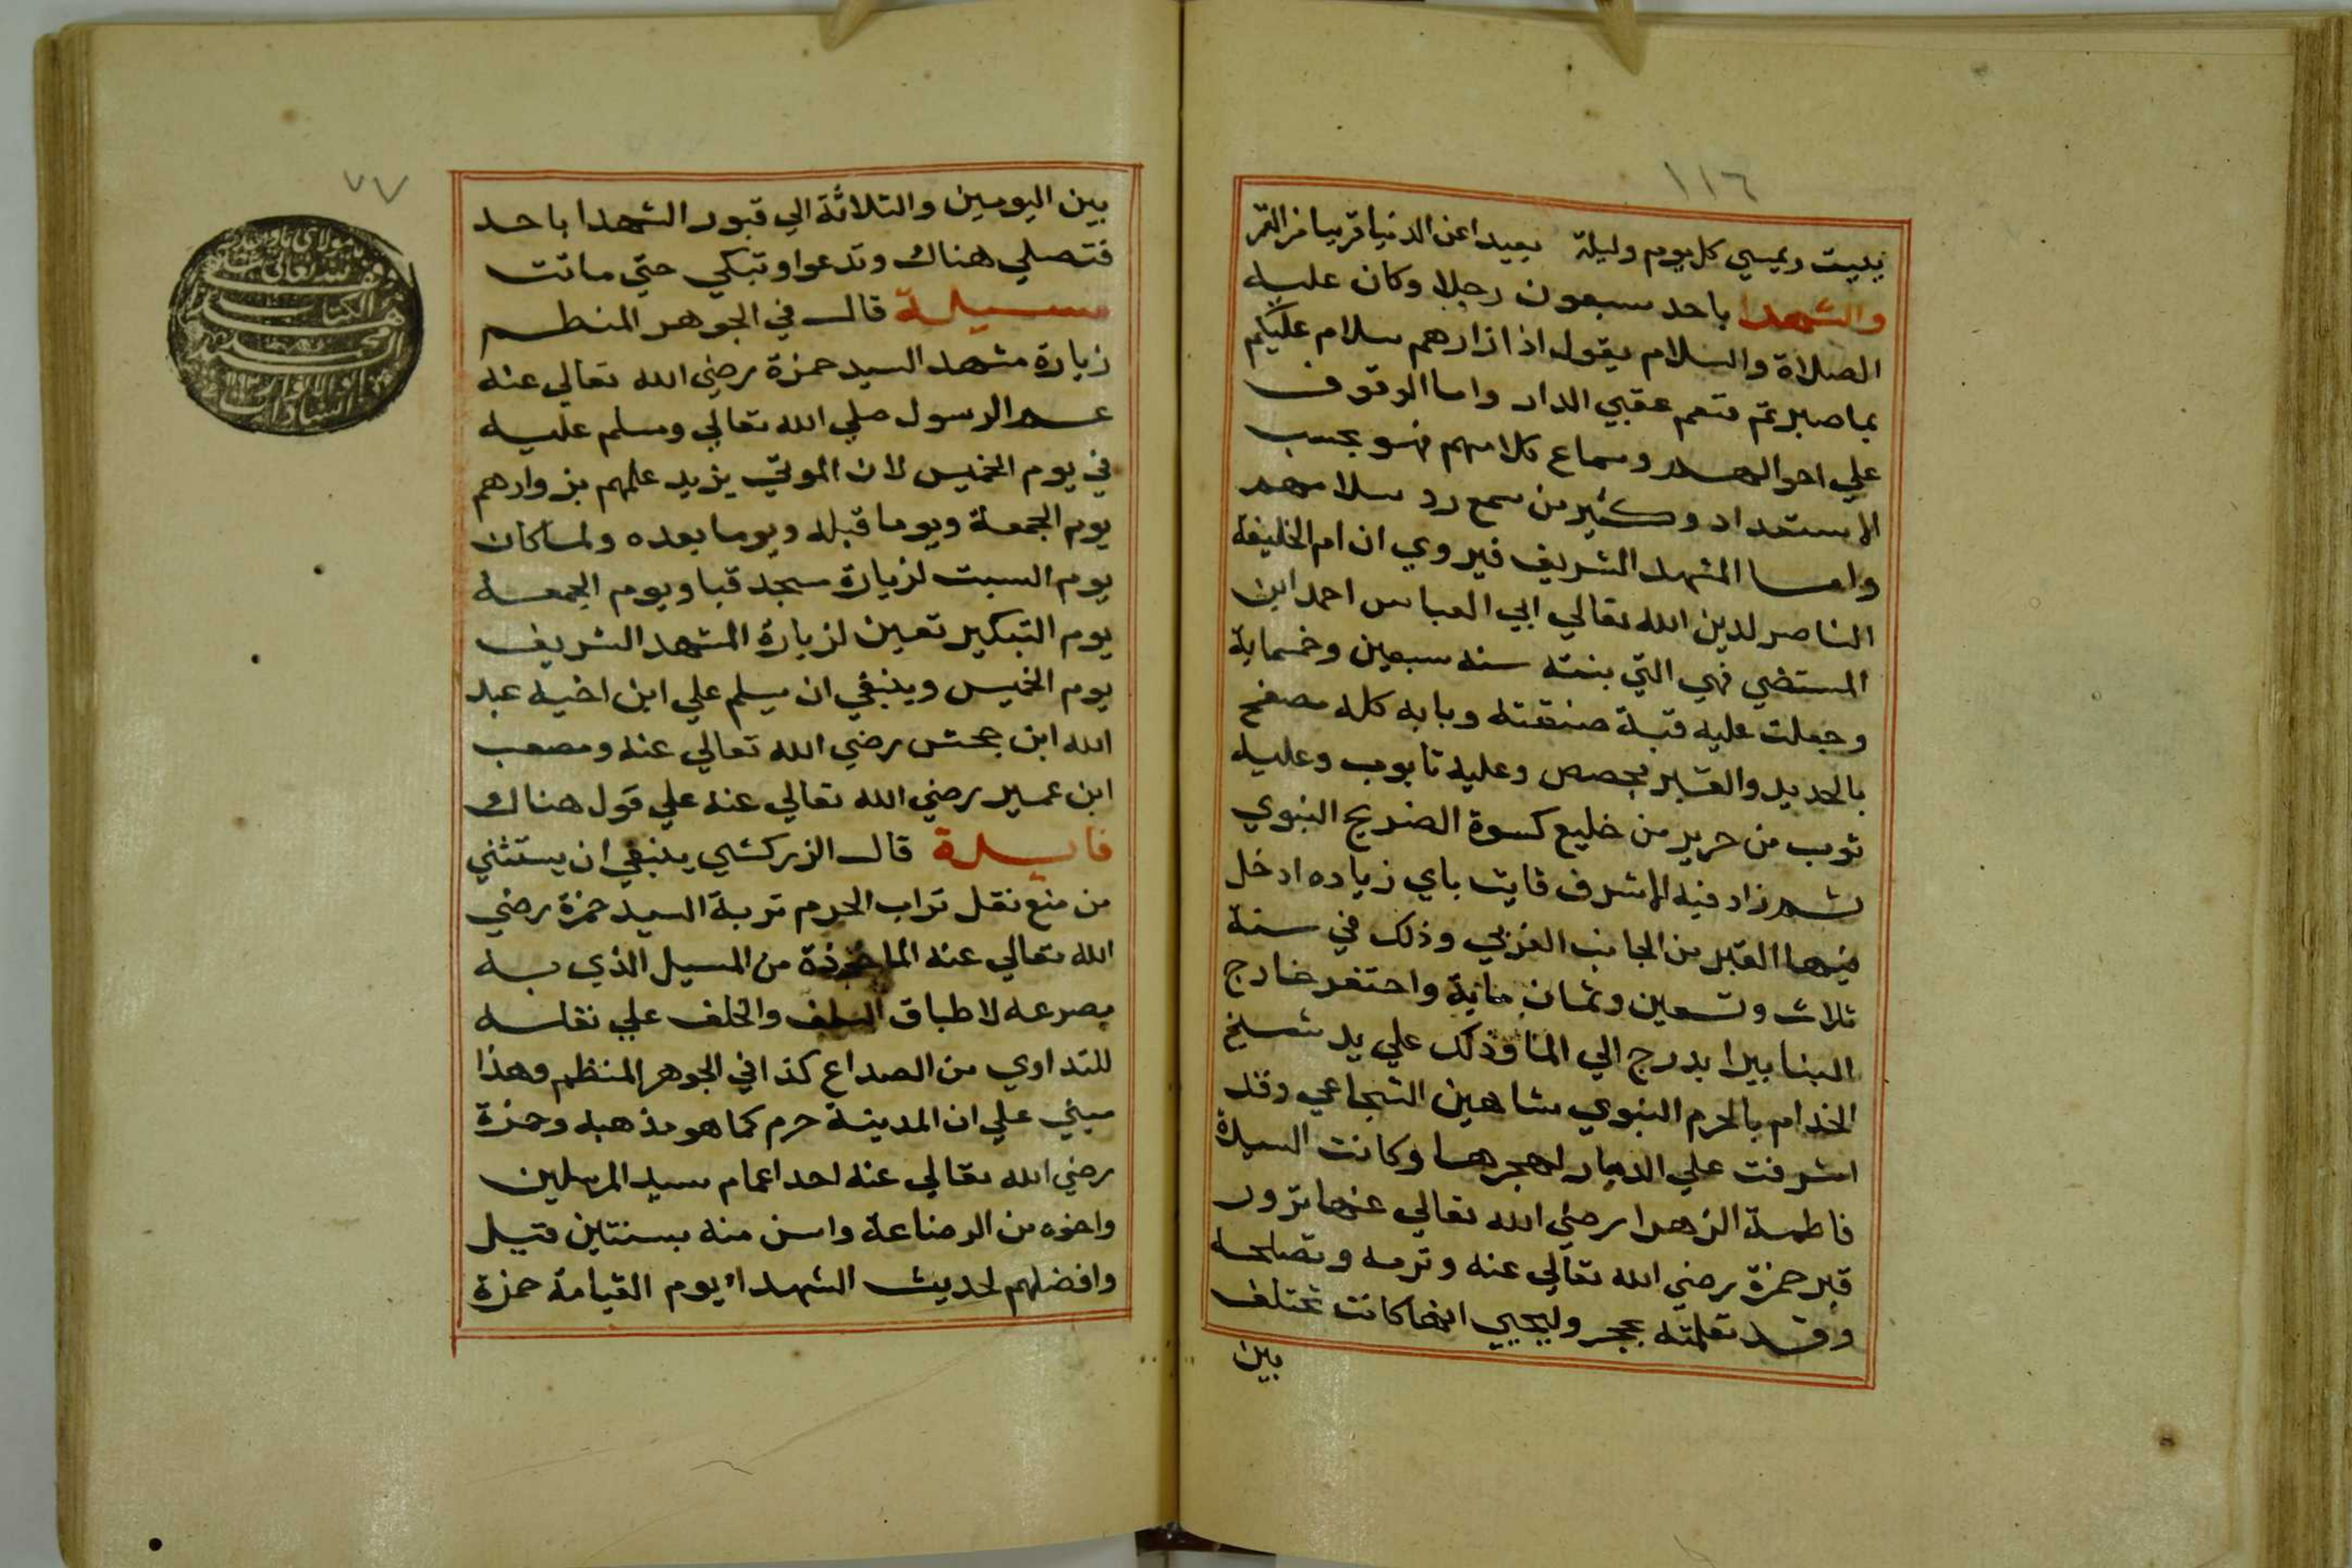 ١١٦
يبيت ويمسي كل يوم وليلة بعيدا عن الدنيا قريبا من القبر
والشهدا باحد سبعون رجلا وكان عليه
الصلاة والسلام يقول اذا زارهم سلام عليكم
بما صبرتم فنعم عقبي الدار واما الوقوف
علي احوالهم وسماع كلامهم فهو بحسب
الاستعداد وكثير من سمع رد سلامهم
واما المشهد الشريف فيروي ان ام الخليفة
الناصر لدين الله تعالي ابي العباس احمد ابن
المستضي فهي التي بنته سنه سبعين وخمساية
وجعلت عليه قبة متقنته وبابه كله مصفح
بالحديد والقبر مجصص وعليه تابوب وعليه
ثوب من حرير من خليع كسوة الضريح النبوي
ثم زاد فيه الاشرف قايت باي زياده ادخل
فيها القبر من الجانب الغربي وذلك في سنة
ثلاث وتسعين وثمان ماية واحتفر خارج
البنا بيرا بدرج الي الما وذلك علي يد شيخ
الخدام بالحرم النبوي شاهين الشجاعي وقد
اشرفت علي الدمار لهجرها وكانت السيدة
فاطمة الزهرا رضي الله تعالي عنها تزور
قبر حمزة رضي الله تعالي عنه وترمه وتصلحه
وقد تعلمته بحجر وليحيي انها كانت تختلف
بين
٧٧
بين اليومين والثلاثة الي قبور الشهدا باحد
فتصلي هناك وتدعوا وتبكي حتي ماتت
مسيلة قال في الجوهر المنظم
زيارة مشهد السيد حمزة رضي الله تعالي عنه
عم الرسول صلي الله تعالي وسلم عليه
في يوم الخميس لان الموتي يزيد علمهم بزوارهم
يوم الجمعة ويوما قبله ويوما بعده ولما كان
يوم السبت لزيارة مسجد قبا ويوم الجمعه
يوم التبكير تعين لزيارة المشهد الشريف
يوم الخميس وينبغي ان يسلم علي ابن اخيه عبد
الله ابن جحش رضي الله تعالي عنه ومصعب
ابن عمير رضي الله تعالي عنه علي قول هناك
فايدة قال الزركشي ينبغي ان يستثني
من منع نقل تراب الحرم تربة السيد حمزة رضي
الله تعالي عنه الماخوذة من المسيل الذي به
مصرعه لاطباق السلف والخلف علي نقله
للتداوي من الصداع كذا في الجوهر المنظم وهذا
مبني علي ان المدينة حرم كما هو مذهبه وحمزة
رضي الله تعالي عنه احد اعمام سيد المرسلين
واخوه من الرضاعة واسن منه بسنتين قتيل
وافضلهم لحديث الشهداء يوم القيامة حمزة